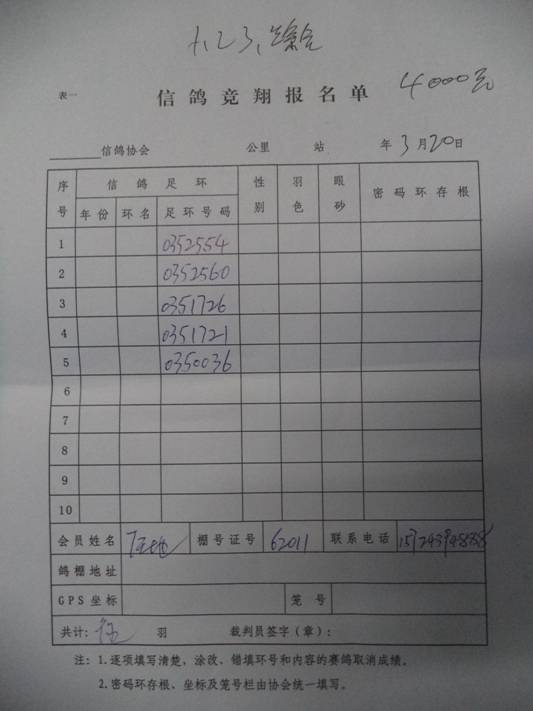 1.2.3.综合
表一
信鸽竞翔报名单 4000元
信鸽协会 公里 站 年3月20日
序号 信鸽足环 性别 羽色 眼砂 密码环存根
年份 环名 足环号码
1 0352554
2 0352560
3 0351726
4 0351721
5 0350036
6
7
8
9
10
会员姓名 棚号证号 62011 联系电话
鸽棚地址
GPS坐标 笼号
共计: 羽 裁判员签字(章):
注: 1.逐项填写清楚、涂改、错填环号和内容的赛鸽取消成绩。
2.密码环存根、坐标及笼号栏由协会统一填写。